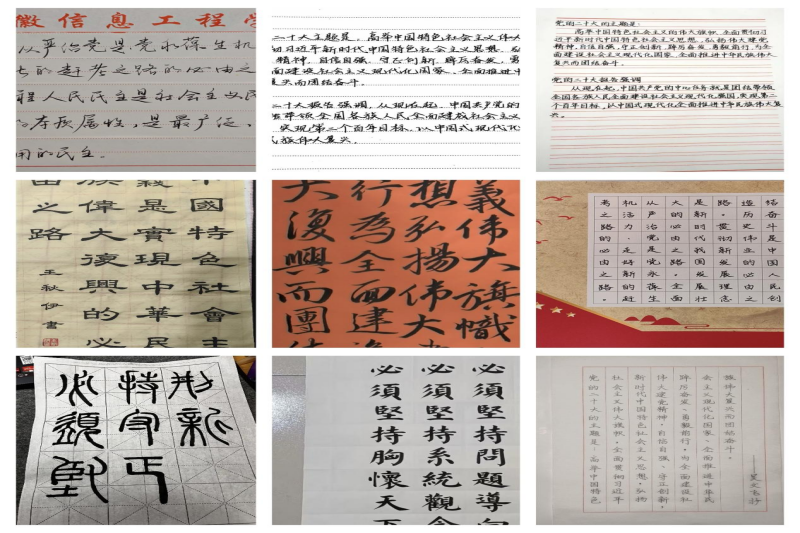 徽信息工程学
从严治党是党永葆生机
的赶考之路的必由之
程人民民主是社会主义民
的本质属性,是最广泛、
用的民主.
二十大主题是,高举中国特色社会主义伟大
彻习近平新时代中国特色社会主义思想,弘
精神,自信自强、守正创新、踔厉奋发、勇
面建设社会主义现代化国家、全面推进中
复兴而团结奋斗。
二十大报告强调,从现在起,中国共产党的
结带领全国各族人民全面建成社会主义
实现第二个百年目标,以中国式现代化
民族伟大复兴。
党的二十大的主题是:
高举中国特色社会主义的伟大旗帜,全面贯彻习
近平新时代中国特色社会主义思想,弘扬伟大建党
精神,自信自强、守正创新、踔厉奋发、勇毅前行,为全
面建设社会主义现代化国家、全面推进中华民族伟大
复兴而团结奋斗。
党的二十大报告强调
从现在起,中国共产党的中心任务就是团结带领
全国各族人民全面建成社会主义现代化强国、实现第二
个百年目标,以中国式现代化全面推进中华民族伟大复
兴。
中國特色社會主
義是實現中華民
族偉大復興的必
由之路
王秋伊書
義伟大旗幟
想弘揚伟大
行為全面建
大復興而團結
结奋斗是中国人民创
造历史伟业的必由之
路。贯彻新发展理念
是新时代我国发展壮
大的必由之路。全面
从严治党是党永葆生
机活力、走好新的赶
考之路的必由之路。
創新
持守正
必須堅
必須堅持問題導向
必須堅持系統觀念
必須堅持胸懷天下
党的二十大的主题是:高举中国特色
社会主义伟大旗帜,全面贯彻习近平
新时代中国特色社会主义思想,弘扬
伟大建党精神,自信自强、守正创新、
踔厉奋发、勇毅前行,为全面建设社
会主义现代化国家、全面推进中华民
族伟大复兴而团结奋斗。